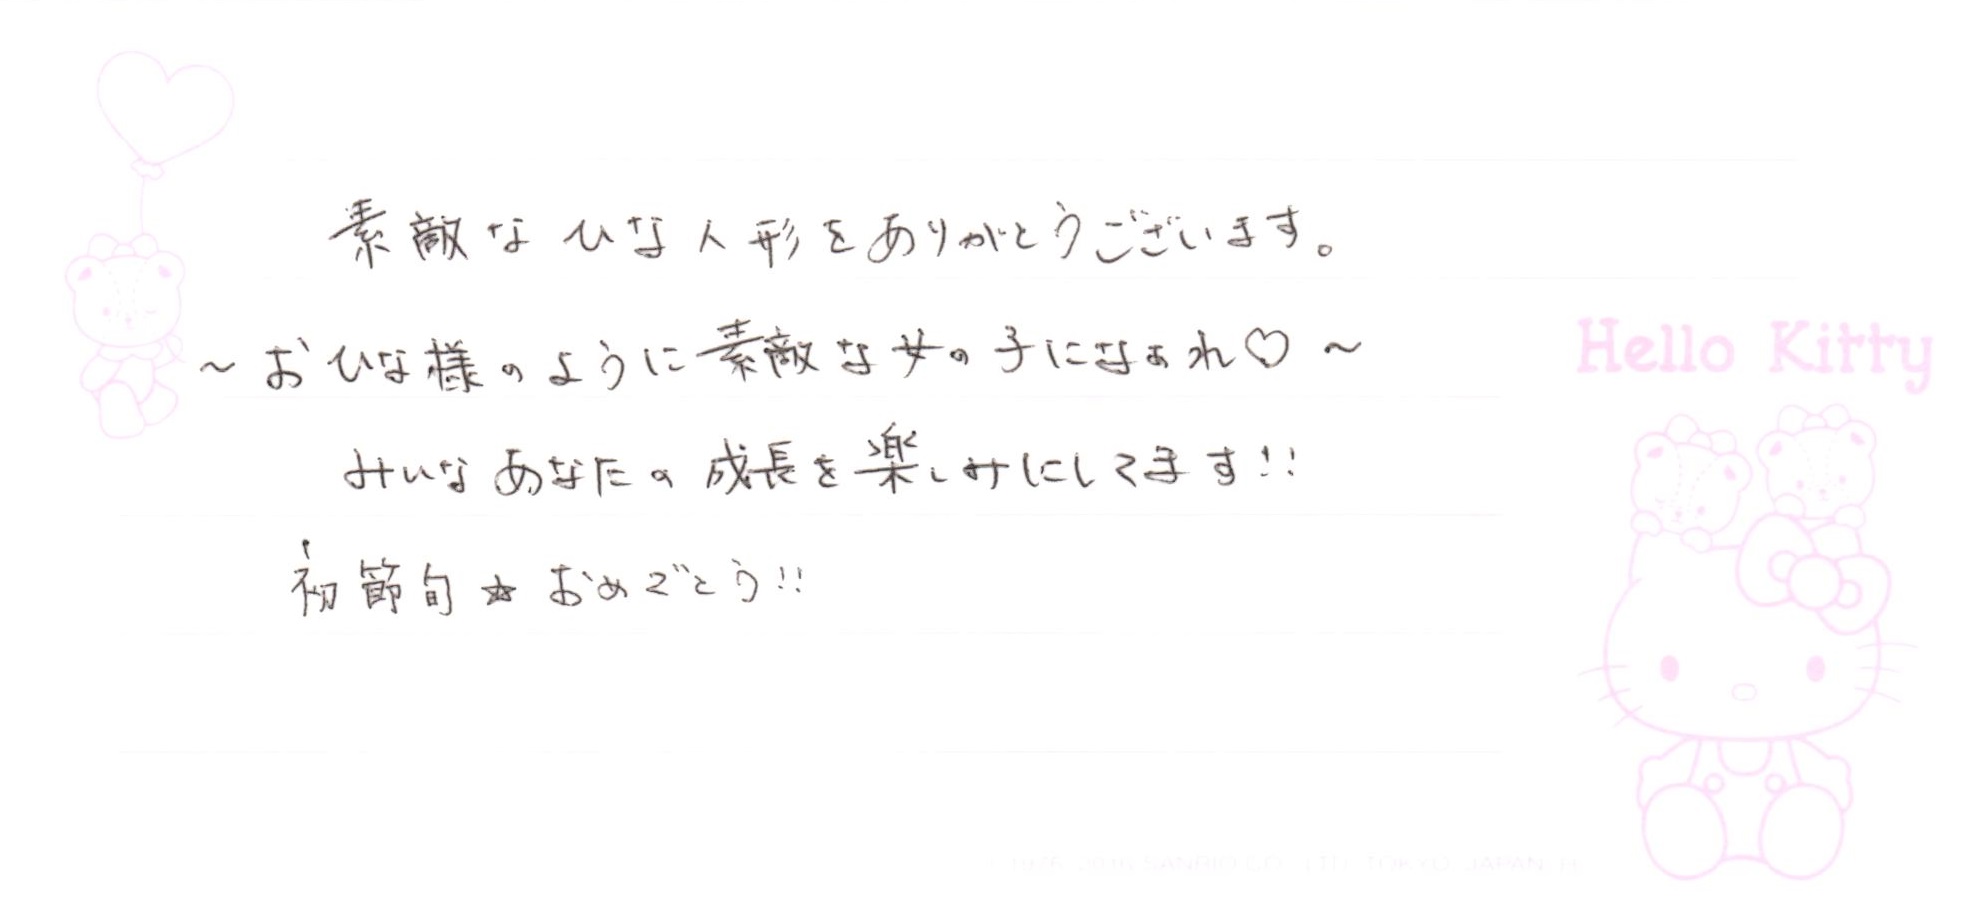 素敵なひな人形をありがとうございます。
～おひな様のように素敵な女の子になぁれ♡～
みいなあなたの成長を楽しみにしてます!!
初節句☆おめでとう!!
Hello Kitty
SANRIO CO., LTD. TOKYO, JAPAN